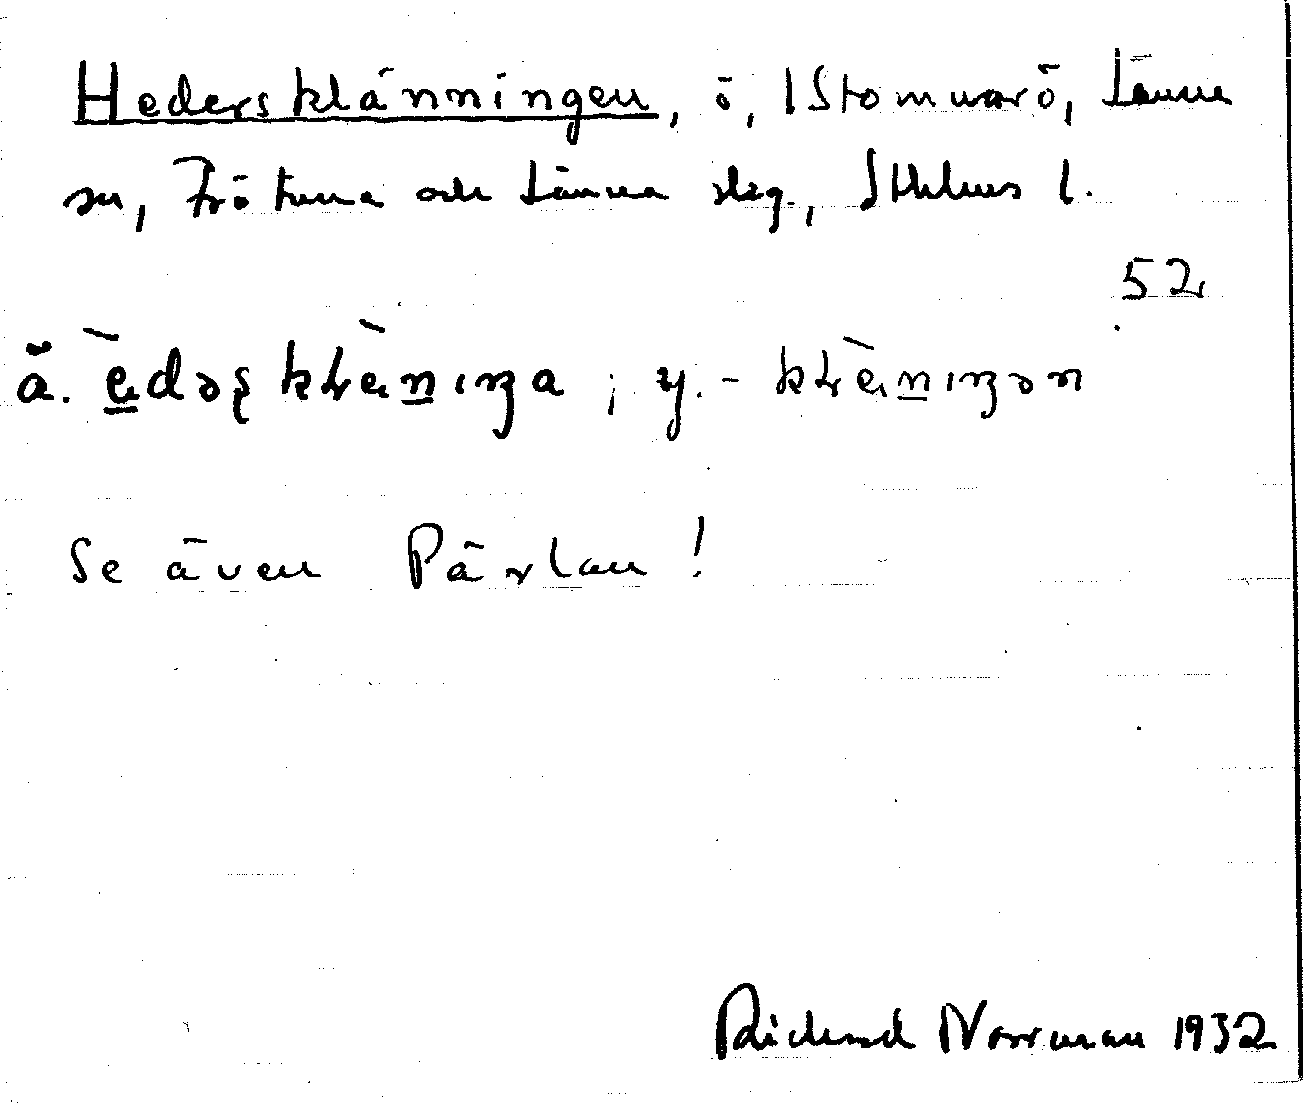 Hedersklänningen, ö, 1 Stomnarö, Länna
sn, Frötuna och Länna slg., Sthlms l.
52
ä. èdəʂ klɛ̀niŋa ; y. - klɛ̀niŋən
Se även Pärlan!
Rickard Norrman 1932